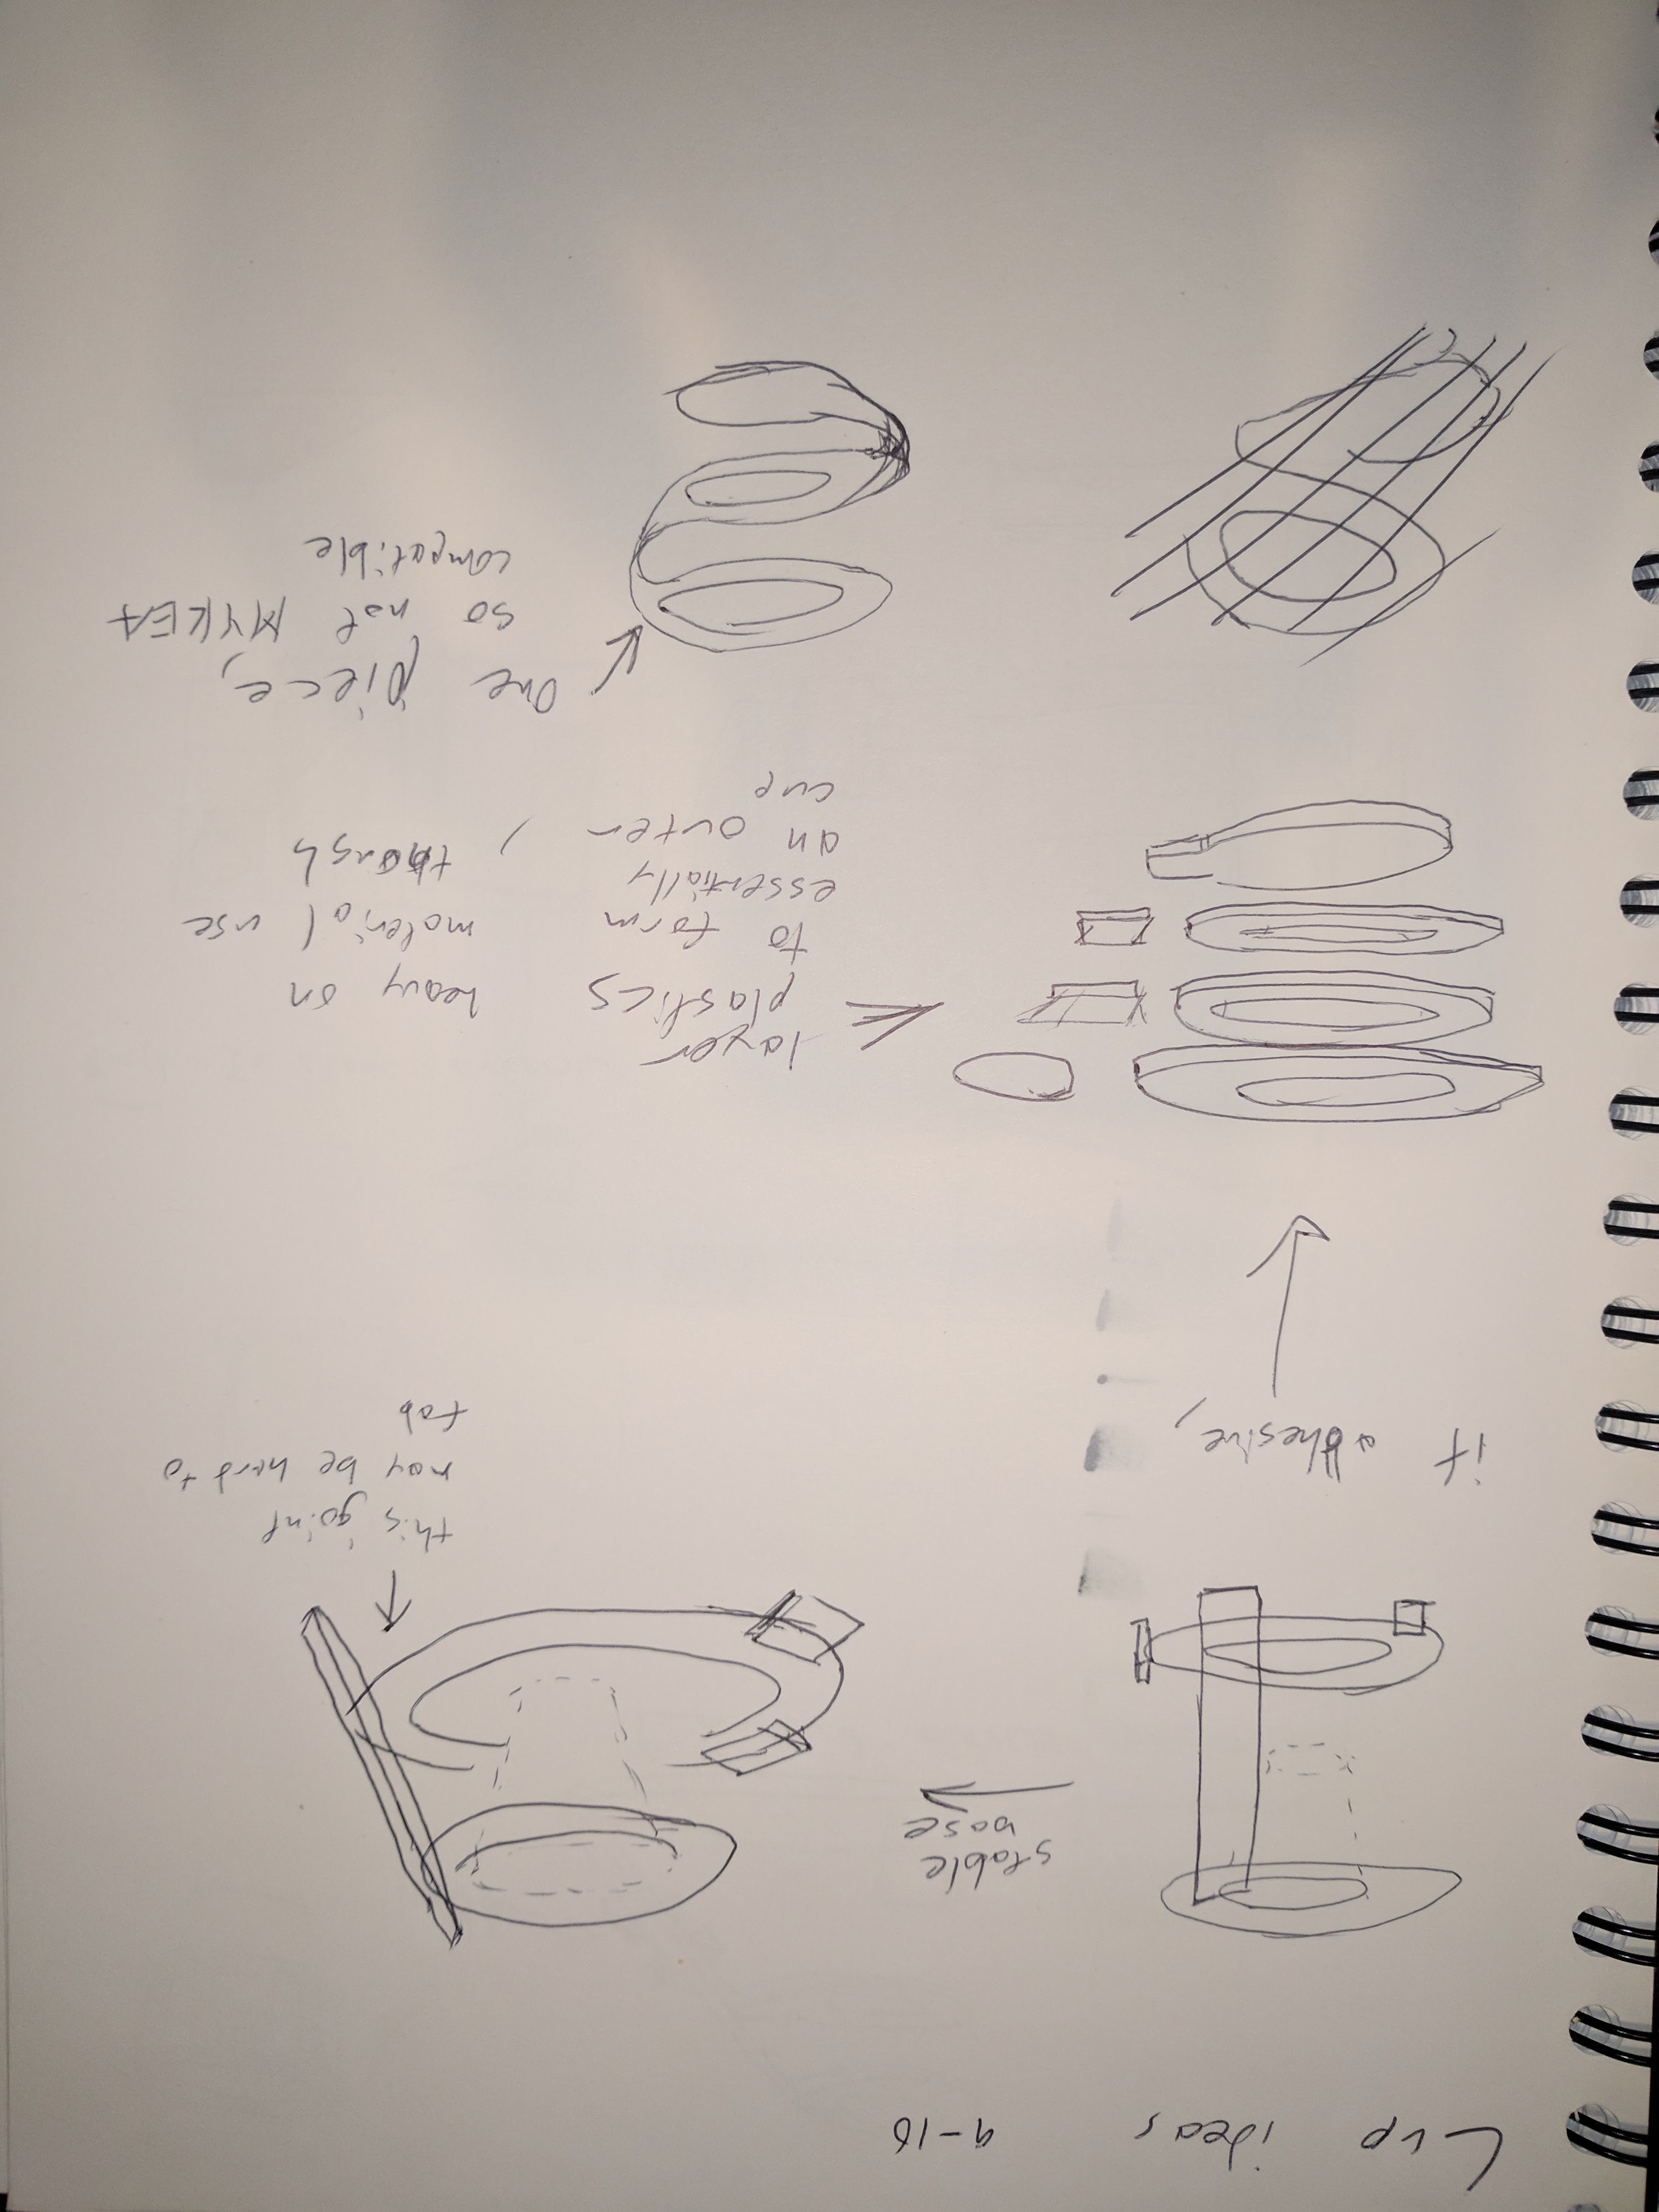 Cup ideas 9-10
stable
base
this joint
may be hard to
fab
if adhesive,
layer
plastics
to form
essentially
an outer
cup
, heavy on
material use
though
one piece,
so not MYKEA
compatible